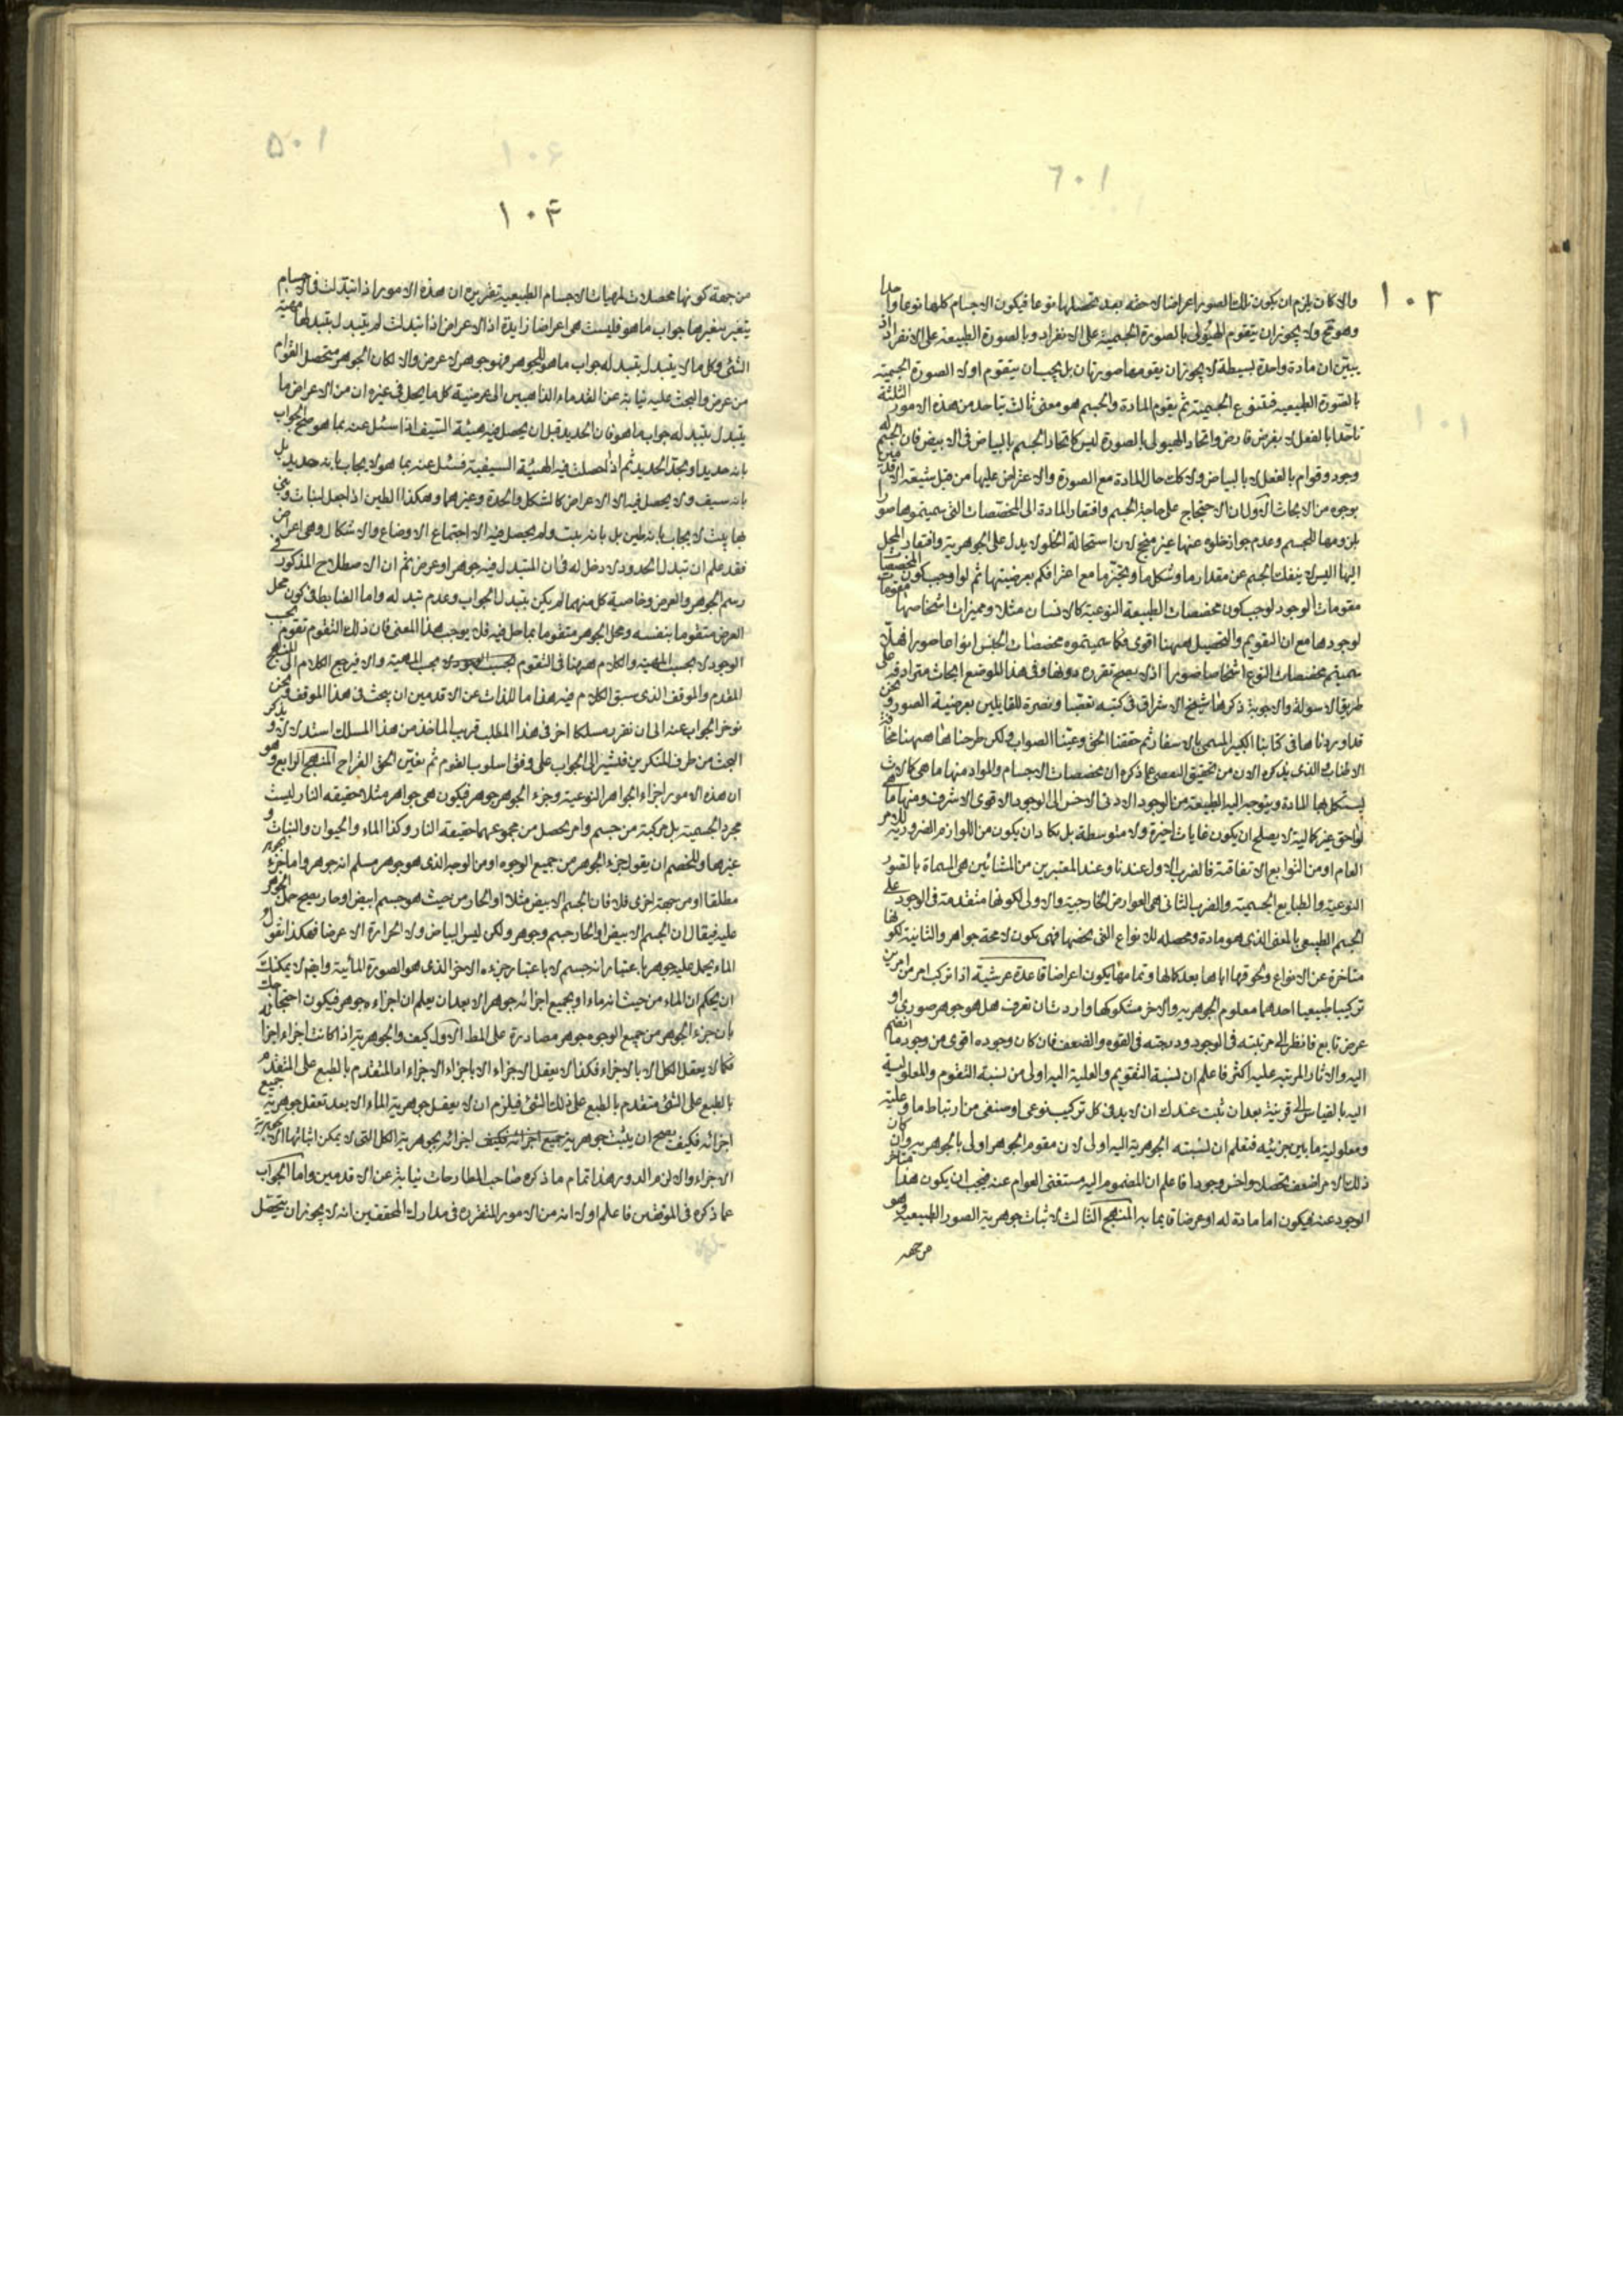 ١٠٣
والا كان يلزم ان يكون تلك الصور اعراضا لاحقه بعد تحصلها نوعا فيكون الاجسام كلها نوعا واحدا
وهو مح ولا يجوز ان يتقوم الهيولى بالصورة الجسمية على الانفراد وبالصورة الطبيعية على الانفراد اذ
يتبين ان مادة واحدة بسيطة لا يجوز ان يقومها صورتان بل يجب ان يتقوم اولا الصورة الجسمية
بالصورة الطبيعيه فيتنوع الجسمية ثم يقوم المادة والجسم هو معنى ثالث يتاحد من هذه الامور الثلثة
تاحدا بالفعل لا بفرض فارض واتحاد الهيولى بالصورة ليس كاتحاد الجسم بالبياض فى الابيض فان الجسم له
وجود وقوام بالفعل لا بالبياض ولا كك حال المادة مع الصورة والاعتراض عليها من قبل شيعة الاقدمين
بوجوه من الابحاث الاول ان الاحتجاج على حاجة الجسم وافتقار المادة الى المخصصات التى سميتموها صورا
بلزومها للجسم وعدم جواز خلوه عنها غير منجح لان استحالة الخلو لا يدل على الجوهرية وافتقار المحل
اليها اليس لا ينفك الجسم عن مقدار ما وشكل ما وتحيز ما مع اعترافكم بعرضيتها ثم لو اوجب كون المخصصات
مقومات الوجود لوجب كون مخصصات الطبيعة النوعية كالانسان مثلا ومميزات اشخاصها مقومات
لوجودها مع ان التقويم والتحصيل ههنا اقوى فكما سميتموه مخصصات الجنس انواعا صورا فهلا
سميتم مخصصات النوع اشخاصا صورا اذ لا يصح تقرره دونها وفى هذا الموضع ابحاث مترادفة على
طريق الاسولة والاجوبة ذكرها شيخ الاشراق فى كتبه تعقبا ونصرة للقايلين بعرضية الصور ونحن
قد اوردناها فى كتابنا الكبير المسمى بالاسفار ثم حققنا الحق وعينا الصواب ولكن طرحناها ههنا مخافة
الاطناب والذى يذكره الان من تحقيق التفصى عما ذكره ان مخصصات الاجسام والمواد منها ما هى كالات
يستكمل بها المادة ويتوجه اليه الطبيعة من الوجود الادنى الاخس الى الوجود الاقوى الاشرف ومنها ما هى
لواحق غير كالية لا يصلح ان يكون غايات اخيرة ولا متوسطة بل يكاد ان يكون من اللوازم الضرورية للامر
العام او من التوابع الاتفاقية فالضرب الاول عندنا وعند المعتبرين من المشائين هى المسماة بالصور
النوعية والطبايع الجسمية والضرب الثانى هى العوارض الخارجية والاولى لكونها متقدمة فى الوجود على
الجسم الطبيعى بالمعنى الذى هو مادة ومحصله للانواع التى يخصها فهى يكون لا محة جواهر والثانية لكونها
متاخرة عن الانواع ولحوقها اياها بعد كمالها وتمامها يكون اعراضا قاعدة عرشية اذا تركب امر من امرين
تركيبا طبيعيا احدهما معلوم الجوهريه والاخر مشكوكها واردت ان تعرف هل هو جوهر صورى او
عرض تابع فانظر الى مرتبته فى الوجود ودرجته فى القوه والضعف فان كان وجوده اقوى من وجود ما انضم
اليه والاثار المرتبه عليه اكثر فاعلم ان نسبة التقويم والعلية اليه اولى من نسبة التقوم والمعلولية
اليه بالقياس الى قرينه بعد ان ثبت عندك ان لا بد فى كل تركيب نوعى او صنفى من ارتباط ما وعلية
ومعلولية ما بين جزئيه فتعلم ان نسبته الجوهرية اليه اولى لان مقوم الجوهر اولى بالجوهريه وان كان
ذلك الامر اضعف تحصلا واخس وجودا فاعلم ان المضموم اليه مستغنى القوام عنه فيجب ان يكون هذا متاخر
الوجود عنه فيكون اما مادة له او عرضا قايما به المنهج الثالث لاثبات جوهرية الصور الطبيعية وهو
من جهه
١٠٤
من جهة كونها محصلات لمهيات الاجسام الطبيعية تقريره ان هذه الامور اذا تبدلت فى الاجسام
يتغير بتغيرها جواب ما هو فليست هى اعراضا زايدة اذ الاعراض اذا تبدلت لم يتبدل بتبدلها مهية
الشئ وكل ما لا يتبدل بتبدله جواب ما هو للجوهر فهو جوهر لا عرض والا لكان الجوهر متحصل القوام
من عرض والبحث عليه نيابة عن القدماء الذاهبين الى عرضية كل ما يحل فى غيره ان من الاعراض ما
يتبدل بتبدله جواب ما هو فان الحديد قبل ان يحصل فيه هيئة السيف اذا سئل عنه بما هو صح الجواب
بانه حديد او بحد الحديد ثم اذا حصلت فيه الهيئة السيفية فسئل عنه بما هو لا يجاب بانه حديد بل
بانه سيف ولا يحصل فيه الا الاعراض كالشكل والحدة وغيرهما وهكذا الطين اذا جعل لبنات وبنى
بها بيت لا يجاب بانه طين بل بانه بيت ولم يحصل فيه الا اجتماع الاوضاع والاشكال وهى اعراض
فقد علم ان تبدل الحدود لا دخل له فى ان المتبدل فيه جوهر او عرض ثم ان الاصطلاح المذكور فى
رسم الجوهر والعرض وخاصية كل منهما لم يكن بتبدل الجواب وعدم تبدله واما الضابط فى كون محل
العرض متقوما بنفسه ومحل الجوهر متقوما بما حل فيه فلا يوجب هذا المعنى فان ذلك التقوم تقوم بحسب
الوجود لا بحسب المهية والكلام ههنا فى التقوم بحسب المهية والا فيرجع الكلام الى المنهج
المقدم والموقف الذى سبق الكلام فيه هذا ما للذاب عن الاقدمين ان يبحث فى هذا الموقف ونحن
نوخر الجواب عنه الى ان نقرر مسلكا اخر فى هذا المطلب قريب الماخذ من هذا المسلك استدلالا و
البحث من طرف المنكرين فنشير الى الجواب على وفق اسلوب القوم ثم نعين الحق القراح المنهج الرابع وهو
ان هذه الامور اجزاء الجواهر النوعية وجزء الجوهر جوهر فيكون هى جواهر مثلا حقيقه النار ليست
مجرد الجسمية بل مركبة من جسم وامر يحصل من مجموعهما حقيقه النار وكذا الماء والحيوان والنبات و
غيرها وللخصم ان يقول جزء الجوهر من جميع الوجوه او من الوجه الذى هو جوهر مسلم انه جوهر واما جزء
مطلقا او من جهة اخرى فلا فان الجسم الابيض مثلا او الحار من حيث هو جسم ابيض او حار يصح حمل الجوهر
عليه فيقال ان الجسم الابيض او الحار جسم وجوهر ولكن ليس البياض ولا الحرارة الا عرضا فهكذا نقول
الماء يحمل عليه جوهر باعتبار انه جسم لا باعتبار جزءه الاخر الذى هو الصورة المائية وايض لا يمكنك
ان يحكم ان الماء من حيث انه ماء او بجميع اجزائه جوهر الا بعد ان يعلم ان اجزاءه جوهر فيكون احتجاجك
بان جزء الجوهر من جميع الوجوه جوهر مصادرة على المط الاول كيف والجوهرية اذا كانت اجزاء اجزائه
فكما لا يعقل الكل الا بالاجزاء فكذا لا يعقل الاجزاء الا باجزاء الاجزاء اذ المتقدم بالطبع على المتقدم
بالطبع على الشئ متقدم بالطبع على ذلك الشئ فيلزم ان لا يعقل جوهرية الماء الا بعد تعقل جوهرية جميع
اجزائه فكيف يصح ان يثبت جوهرية اجزائه بجوهرية الكل التى لا يمكن اثباتها الا بجوهرية
الاجزاء والا لزم الدور هذا تمام ما ذكره صاحب المطارحات نيابة عن الاقدمين واما الجواب
عما ذكره فى الموقفين فاعلم اولا انه من الامور المتقررة فى مدارك المحققين انه لا يجوز ان يتحصل